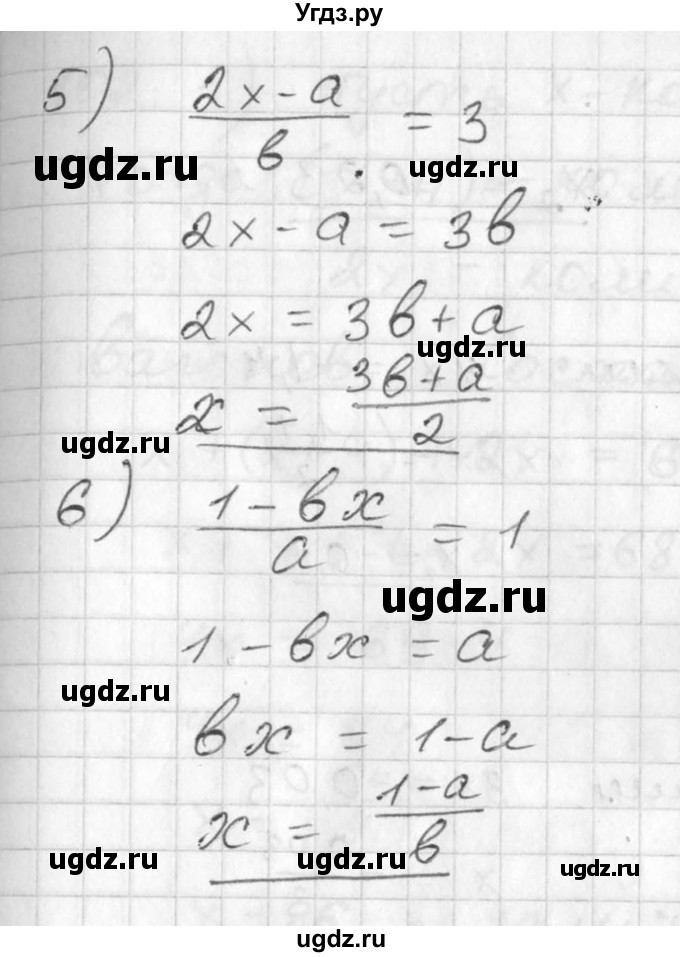 Угдз.ру
5) (2x - a)/в = 3
ugdz.ru ugdz.ru
2x - a = 3в
2x = 3в + a
ugdz.ru
x = (3в + a)/2
ugdz.ru
6) (1 - вx)/a = 1
ugdz.ru
1 - вx = a
ugdz.ru
вx = 1 - a
x = (1 - a)/в
ugdz.ru ugdz.ru ugdz.ru
ugdz.ru